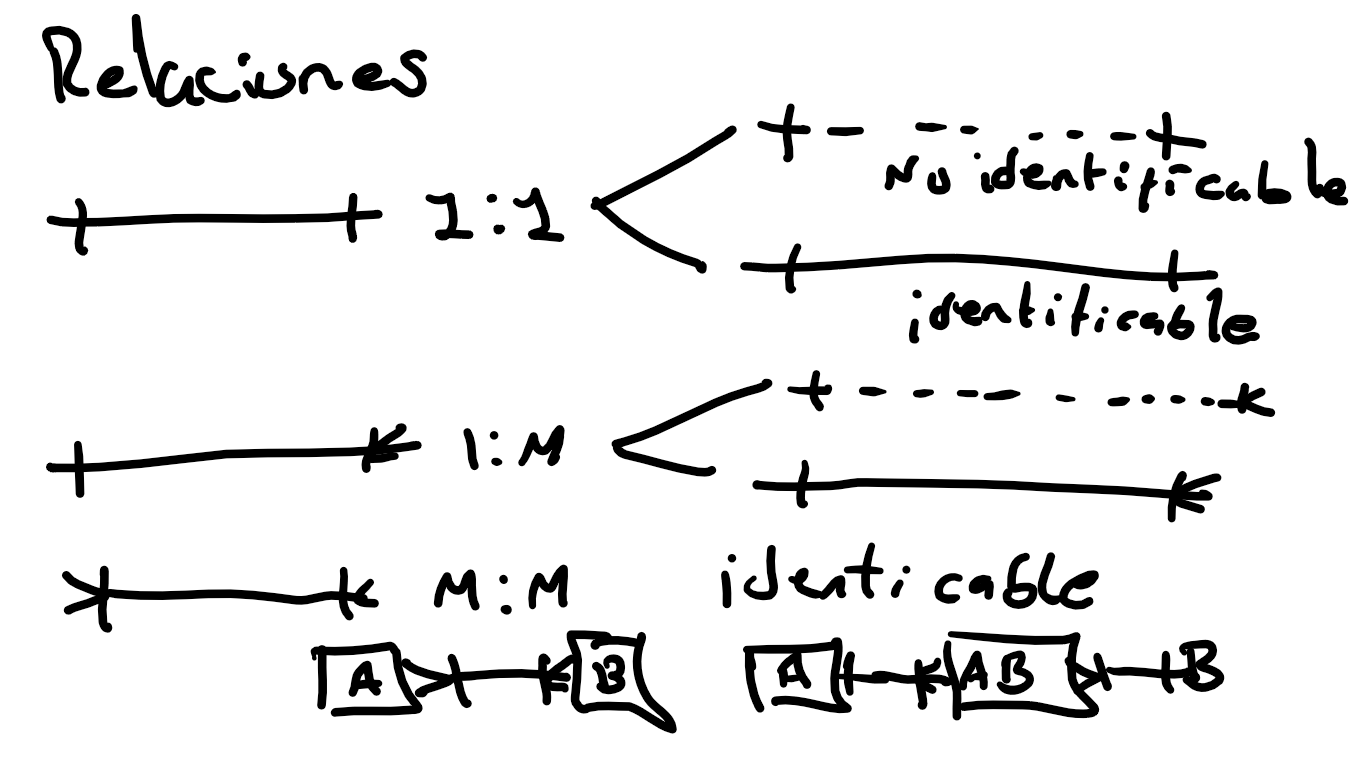 Relaciones
1:1
No identificable
identificable
1:M
M:M
identicable
A
B
A
AB
B